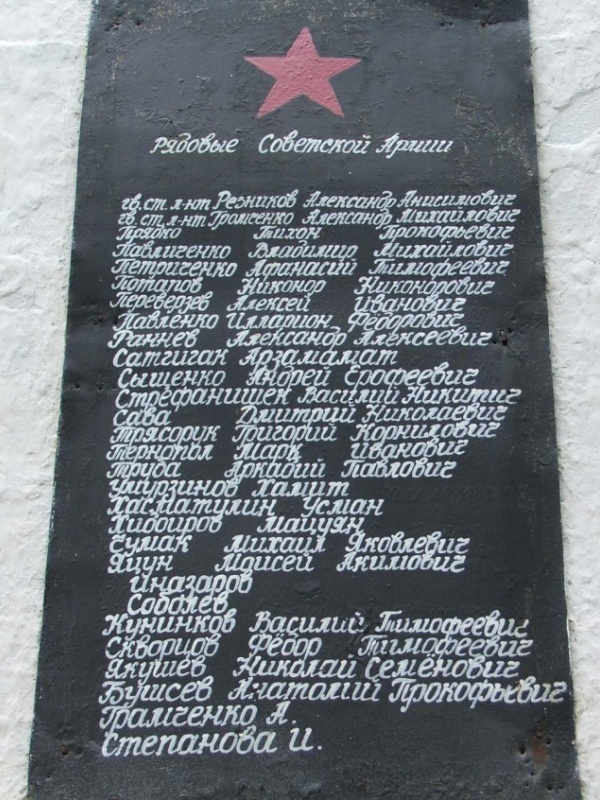 Рядовые Советской Армии
гв. ст. л-нт. Резников Александр Анисимович
гв. ст. л-нт. Громченко Александр Михайлович
Прядко Тихон Прокофьевич
Павличенко Владимир Михайлович
Петриченко Афанасий Тимофеевич
Потапов Никонор Никонорович
Переверзев Алексей Иванович
Павленко Илларион Фёдорович
Раннев Александр Алексеевич
Сатгигак Арзамамат
Сыщенко Андрей Ерофеевич
Стрефанишек Василий Никитич
Сава Дмитрий Николаевич
Трясорук Григорий Корнилович
Тернопол Марк Иванович
Труба Аркадий Павлович
Умирзинов Хамит
Хасматулин Усман
Хидоиров Машуян
Чумак Михаил Яковлевич
Яцун Моисей Акимович
Иназаров
Соболев
Кунинков Василий Тимофеевич
Скворцов Фёдор Тимофеевич
Якушев Николай Семёнович
Бушсев Анатолий Прокофьевич
Грамченко А.
Степанова И.